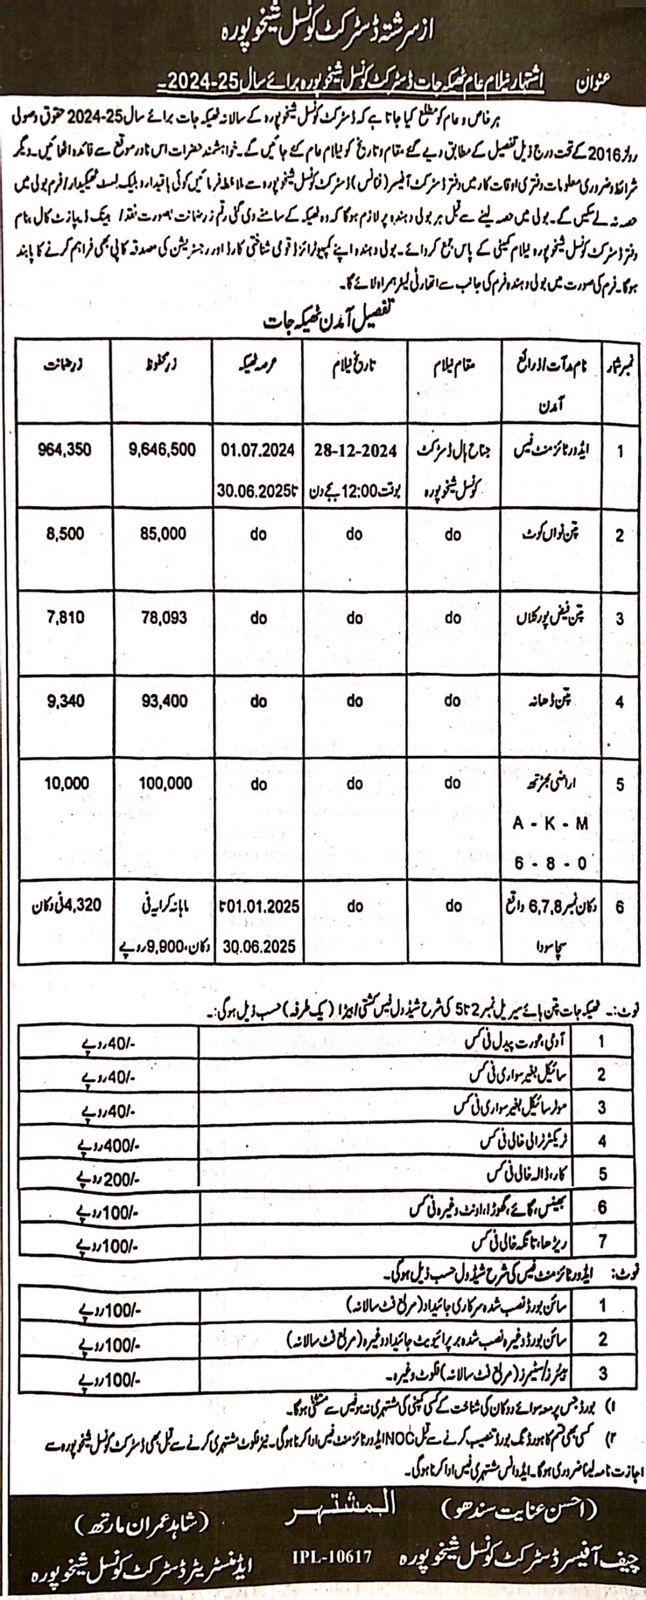 از سرشتہ ڈسٹرکٹ کونسل شیخوپورہ
عنوان اشتہار نیلام عام ٹھیکہ جات ڈسٹرکٹ کونسل شیخوپورہ برائے سال 25-2024۔
ہر خاص و عام کو مطلع کیا جاتا ہے کہ ڈسٹرکٹ کونسل شیخوپورہ کے سالانہ ٹھیکہ جات برائے سال 25-2024 حقوق وصولی
رولز 2016 کے تحت درج ذیل تفصیل کے مطابق دیے گئے مقام و تاریخ کو نیلام عام کئے جائیں گے۔ خواہشمند حضرات اس نادر موقع سے فائدہ اٹھائیں۔ دیگر
شرائط و ضروری معلومات دفتری اوقات کار میں دفتر ڈسٹرکٹ آفیسر (فنانس) ڈسٹرکٹ کونسل شیخوپورہ سے ملاحظہ فرمائیں کوئی باقیدار و بلیک لسٹ ٹھیکیدار/فرم بولی میں
حصہ نہ لے سکیں گے۔ بولی میں حصہ لینے سے قبل ہر بولی دہندہ پر لازم ہوگا کہ وہ ٹھیکہ کے سامنے دی گئی رقم زر ضمانت بصورت نقد/بینک ڈیپازٹ کال بنام
دفتر ڈسٹرکٹ کونسل شیخوپورہ نیلام کمیٹی کے پاس جمع کروائے۔ بولی دہندہ اپنے کمپیوٹرائزڈ قومی شناختی کارڈ اور رجسٹریشن کی مصدقہ کاپی بھی فراہم کرنے کا پابند
ہوگا۔ فرم کی صورت میں بولی دہندہ فرم کی جانب سے اتھارٹی لیٹر ہمراہ لائے گا۔
تفصیل آمدن ٹھیکہ جات
نمبر شمار نام مدآت/ذرائع آمدن مقام نیلام تاریخ نیلام عرصہ ٹھیکہ زر محفوظ زر ضمانت
1 ایڈورٹائزمنٹ فیس جناح ہال ڈسٹرکٹ کونسل شیخوپورہ 28-12-2024 بوقت 12:00 بجے دن 01.07.2024 تا 30.06.2025 9,646,500 964,350
2 پتن نواں کوٹ do do do 85,000 8,500
3 پتن فیض پور کلاں do do do 78,093 7,810
4 پتن ڈھانہ do do do 93,400 9,340
5 اراضی do do do 100,000 10,000
A - K - M
6 - 8 - 0
6 دکان نمبر 6,7,8 واقع سچا سودا do do 01.01.2025 تا 30.06.2025 ماہانہ کرایہ فی دکان، 9,900 روپے 4,320 فی دکان
نوٹ:۔ ٹھیکہ جات پتن ہائے سیریل نمبر 2 تا 5 کی شرح شیڈول فیس کشتی/بیڑا (یک طرفہ) حسب ذیل ہوگی:۔
1 آدمی، عورت پیدل فی کس 40/- روپے
2 سائیکل بغیر سواری فی کس 40/- روپے
3 موٹر سائیکل بغیر سواری فی کس 40/- روپے
4 ٹریکٹر ٹرالی خالی فی کس 400/- روپے
5 کار، ڈالہ خالی فی کس 200/- روپے
6 بھینس، گائے، گھوڑا، اونٹ وغیرہ فی کس 100/- روپے
7 ریڑھا، تانگہ خالی فی کس 100/- روپے
نوٹ: ایڈورٹائزمنٹ فیس کی شرح شیڈول حسب ذیل ہوگی۔
1 سائن بورڈ نصب شدہ سرکاری جائیداد (مربع فٹ سالانہ) 100/- روپے
2 سائن بورڈ وغیرہ نصب شدہ پرائیویٹ جائیداد وغیرہ (مربع فٹ سالانہ) 100/- روپے
3 بینرز/سٹیمرز (مربع فٹ سالانہ) فلوٹ وغیرہ۔ 100/- روپے
۱) بورڈ جس پر ماسوائے دوکان کی شناخت کے کسی کمپنی کی مشتہری نہ ہو فیس سے مستثنیٰ ہوگا۔
۲) کسی بھی قسم کا ہورڈنگ بورڈ تنصیب کرنے سے قبل NOC ایڈورٹائزمنٹ فیس ادا کرنا ہوگی۔ نیز فلوٹ مشتہری کرنے سے قبل بھی ڈسٹرکٹ کونسل شیخوپورہ سے
اجازت نامہ لینا ضروری ہوگا۔ ایڈوانس مشتہری فیس ادا کرنا ہوگی۔
المشتہر
(احسن عنایت سندھو) (شاہد عمران مارتھ)
چیف آفیسر ڈسٹرکٹ کونسل شیخوپورہ IPL-10617 ایڈمنسٹریٹر ڈسٹرکٹ کونسل شیخوپورہ